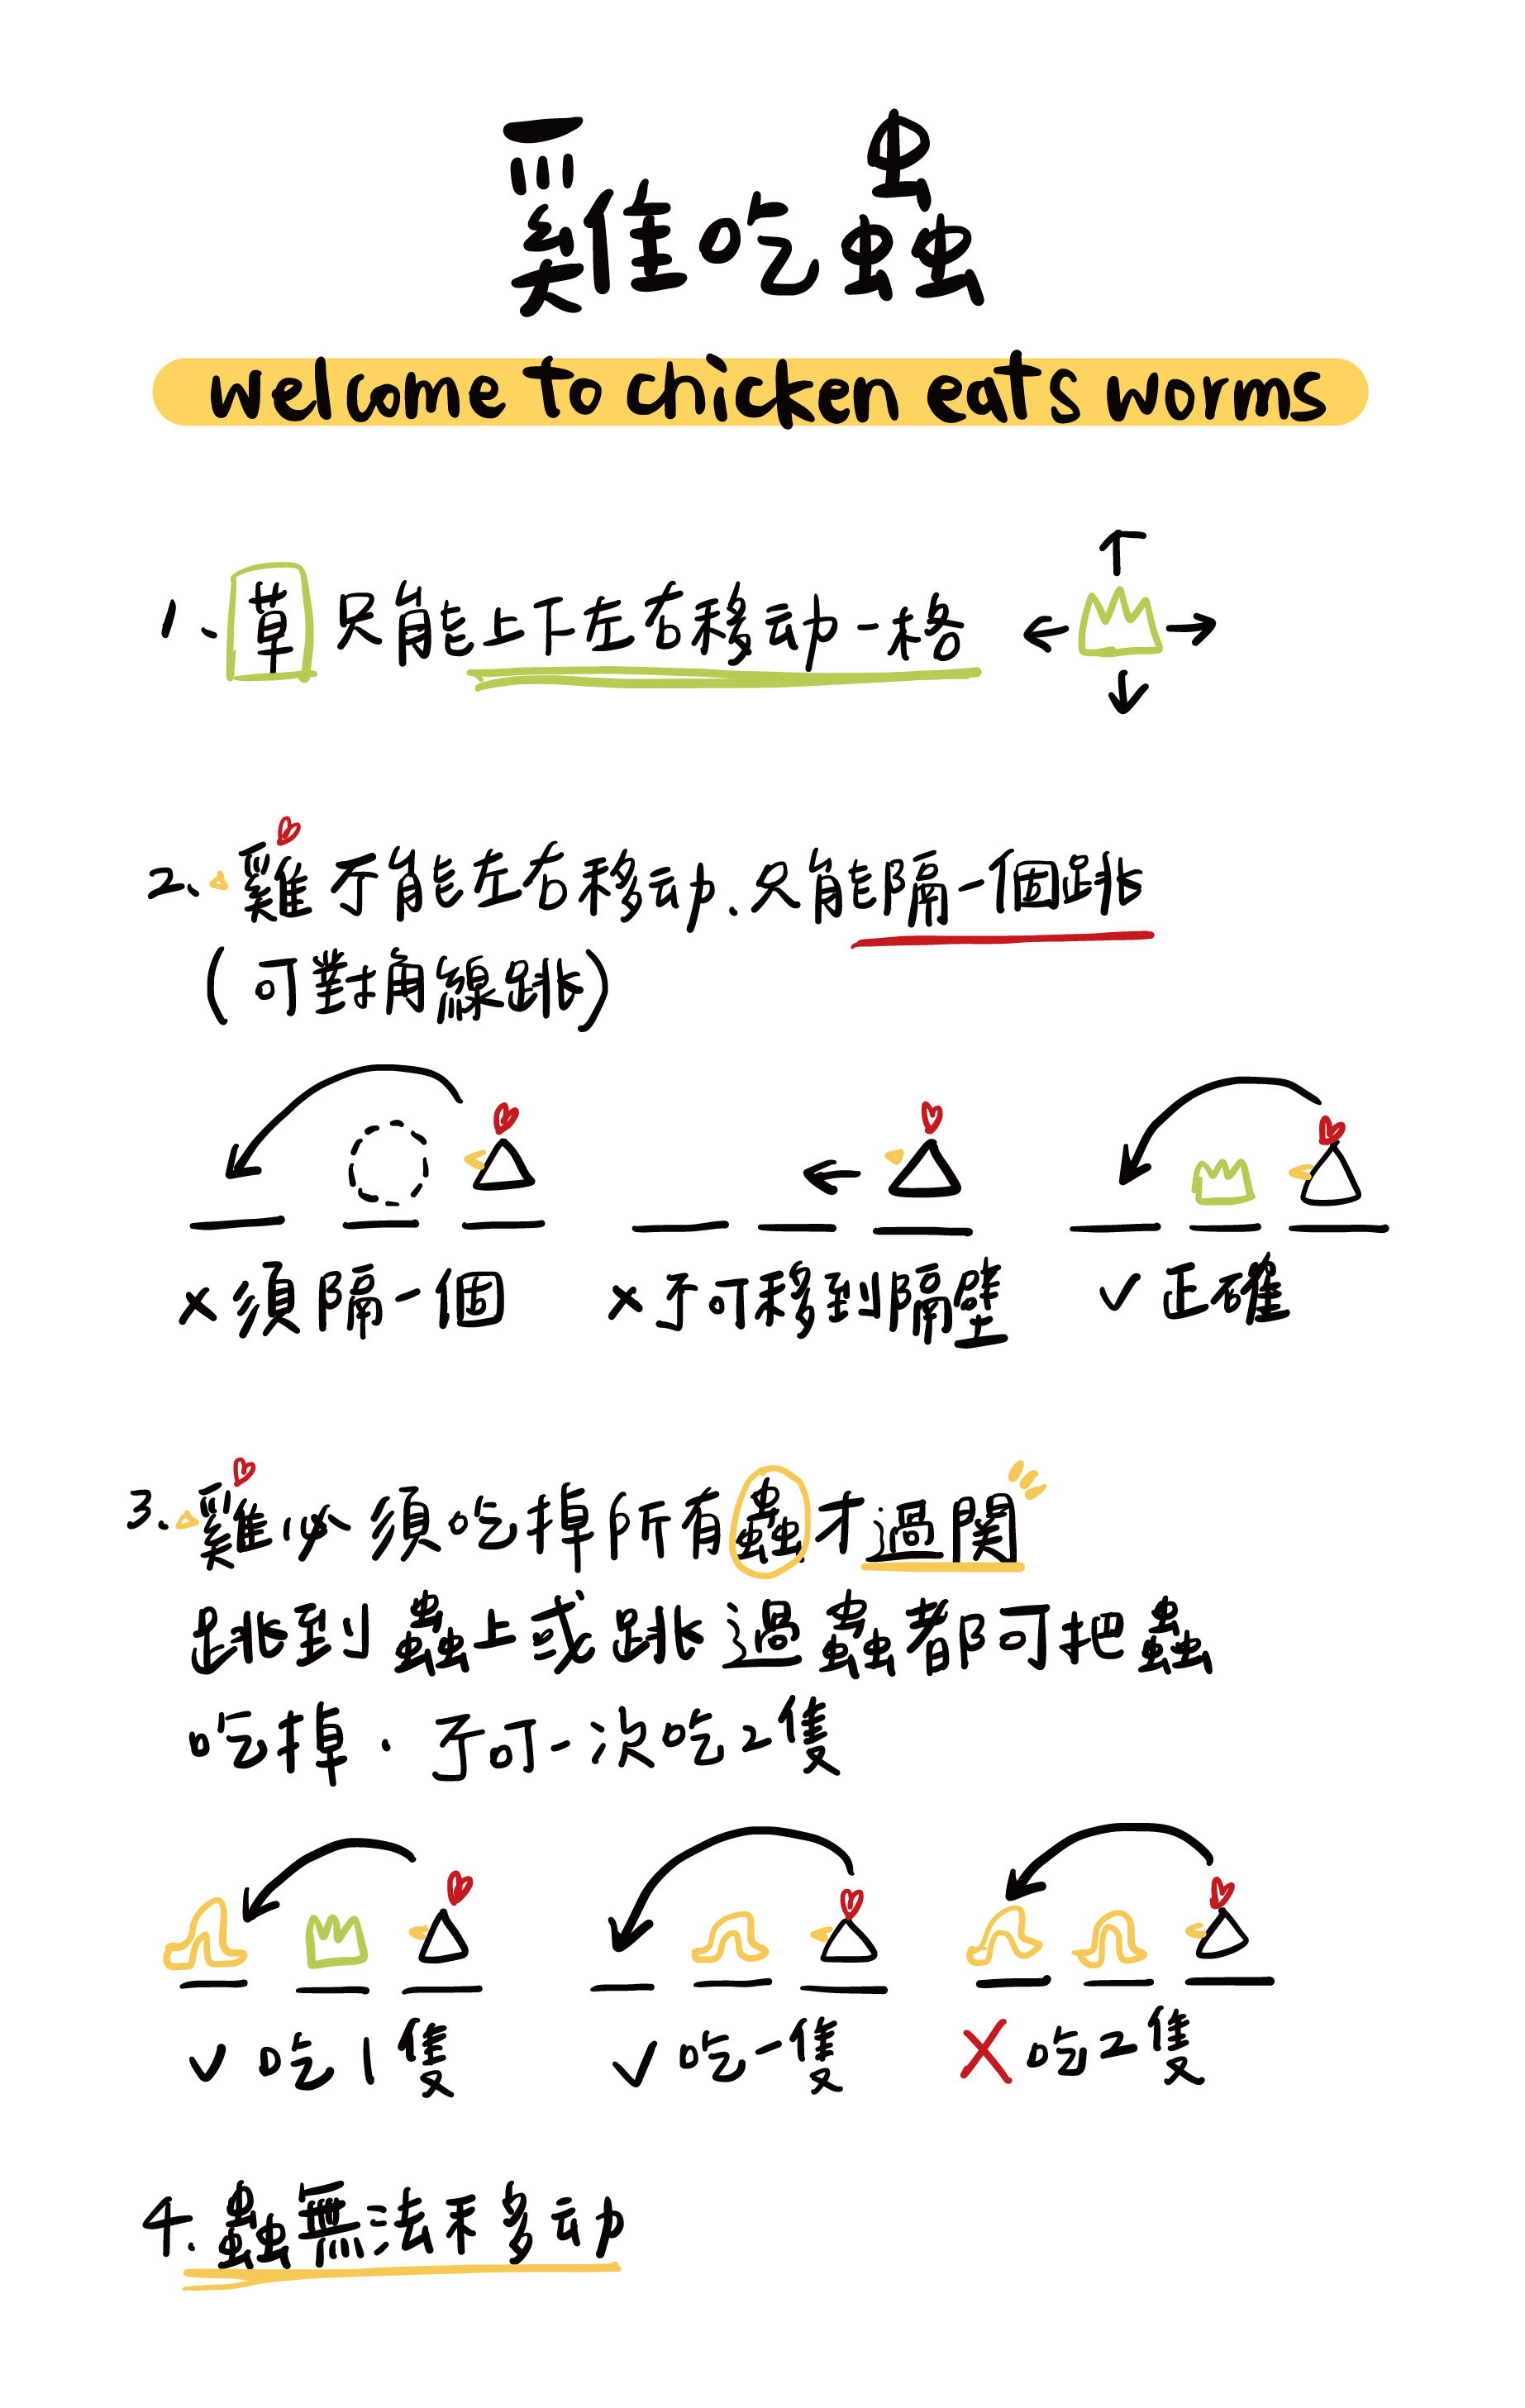 雞吃蟲
welcome to chicken eats worms
1、草只能上下左右移动一格
2、雞不能左右移动、只能隔一個跳
(可對角線跳)
x 須隔一個
x 不可移到隔壁
✓ 正確
3、雞必須吃掉所有蟲才過関
跳到蟲上或跳過蟲都可把蟲
吃掉．不可一次吃2隻
✓ 吃1隻
✓ 吃一隻
X 吃2隻
4、蟲無法移动